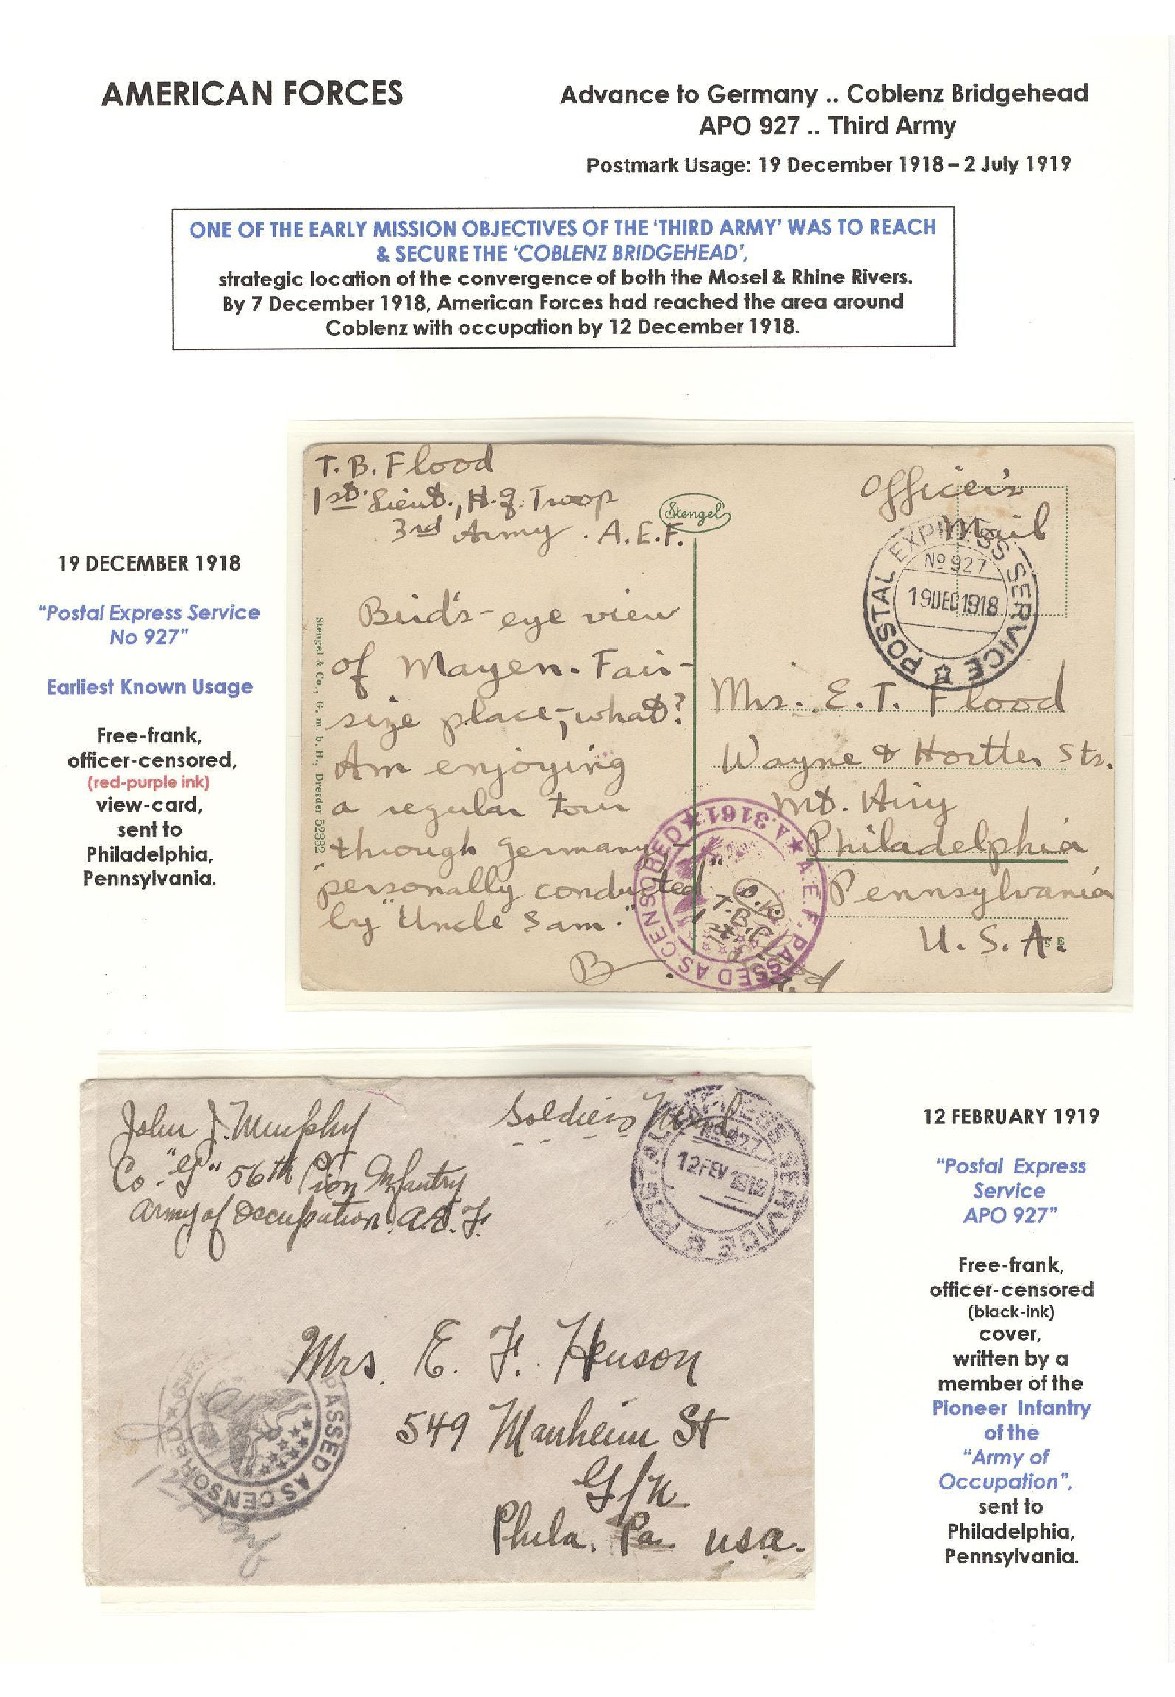 AMERICAN FORCES
Advance to Germany .. Coblenz Bridgehead
APO 927 .. Third Army
Postmark Usage: 19 December 1918 – 2 July 1919
ONE OF THE EARLY MISSION OBJECTIVES OF THE 'THIRD ARMY' WAS TO REACH
& SECURE THE 'COBLENZ BRIDGEHEAD',
strategic location of the convergence of both the Mosel & Rhine Rivers.
By 7 December 1918, American Forces had reached the area around
Coblenz with occupation by 12 December 1918.
19 DECEMBER 1918
"Postal Express Service
No 927"
Earliest Known Usage
Free-frank,
officer-censored,
(red-purple ink)
view-card,
sent to
Philadelphia,
Pennsylvania.
T. B. Flood
1st Lieut., H.q. Troop
3rd Army. A.E.F.
Stengel
Officer's
Mail
POSTAL EXPRESS SERVICE
No 927
19 DEC 1918
Bird's-eye view
of Mayen. Fair-
size place, what?
Am enjoying
a regular tour
through Germany,
personally conducted
by "Uncle Sam."
B
Stengel & Co., G. m. b. H., Dresden 52332
Mrs. E. T. Flood
Wayne & Hortter Sts.
Mt. Airy
Philadelphia
Pennsylvania
U. S. A.
A.E.F. PASSED AS CENSORED
A.3161
O.K.
John J. Murphy
Co. "G" 56th Pion Infantry
Army of Occupation A.E.F.
Soldiers Mail
POSTAL EXPRESS SERVICE
No 927
12 FEV 1919
Mrs. E. F. Henson
549 Manheim St
G/n
Phila. Pa. USA.
PASSED AS CENSORED
12 FEBRUARY 1919
"Postal Express
Service
APO 927"
Free-frank,
officer-censored
(black-ink)
cover,
written by a
member of the
Pioneer Infantry
of the
"Army of
Occupation",
sent to
Philadelphia,
Pennsylvania.